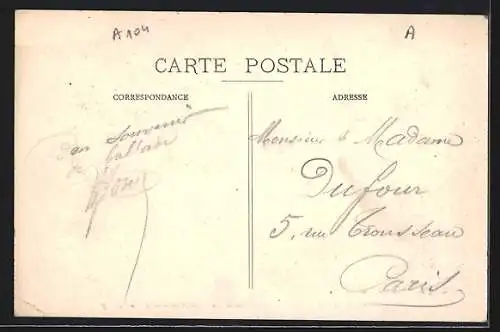 A 104
A
CARTE POSTALE
CORRESPONDANCE
ADRESSE
souvenir
de
Monsieur & Madame
Dufour
5, rue Trousseau
Paris